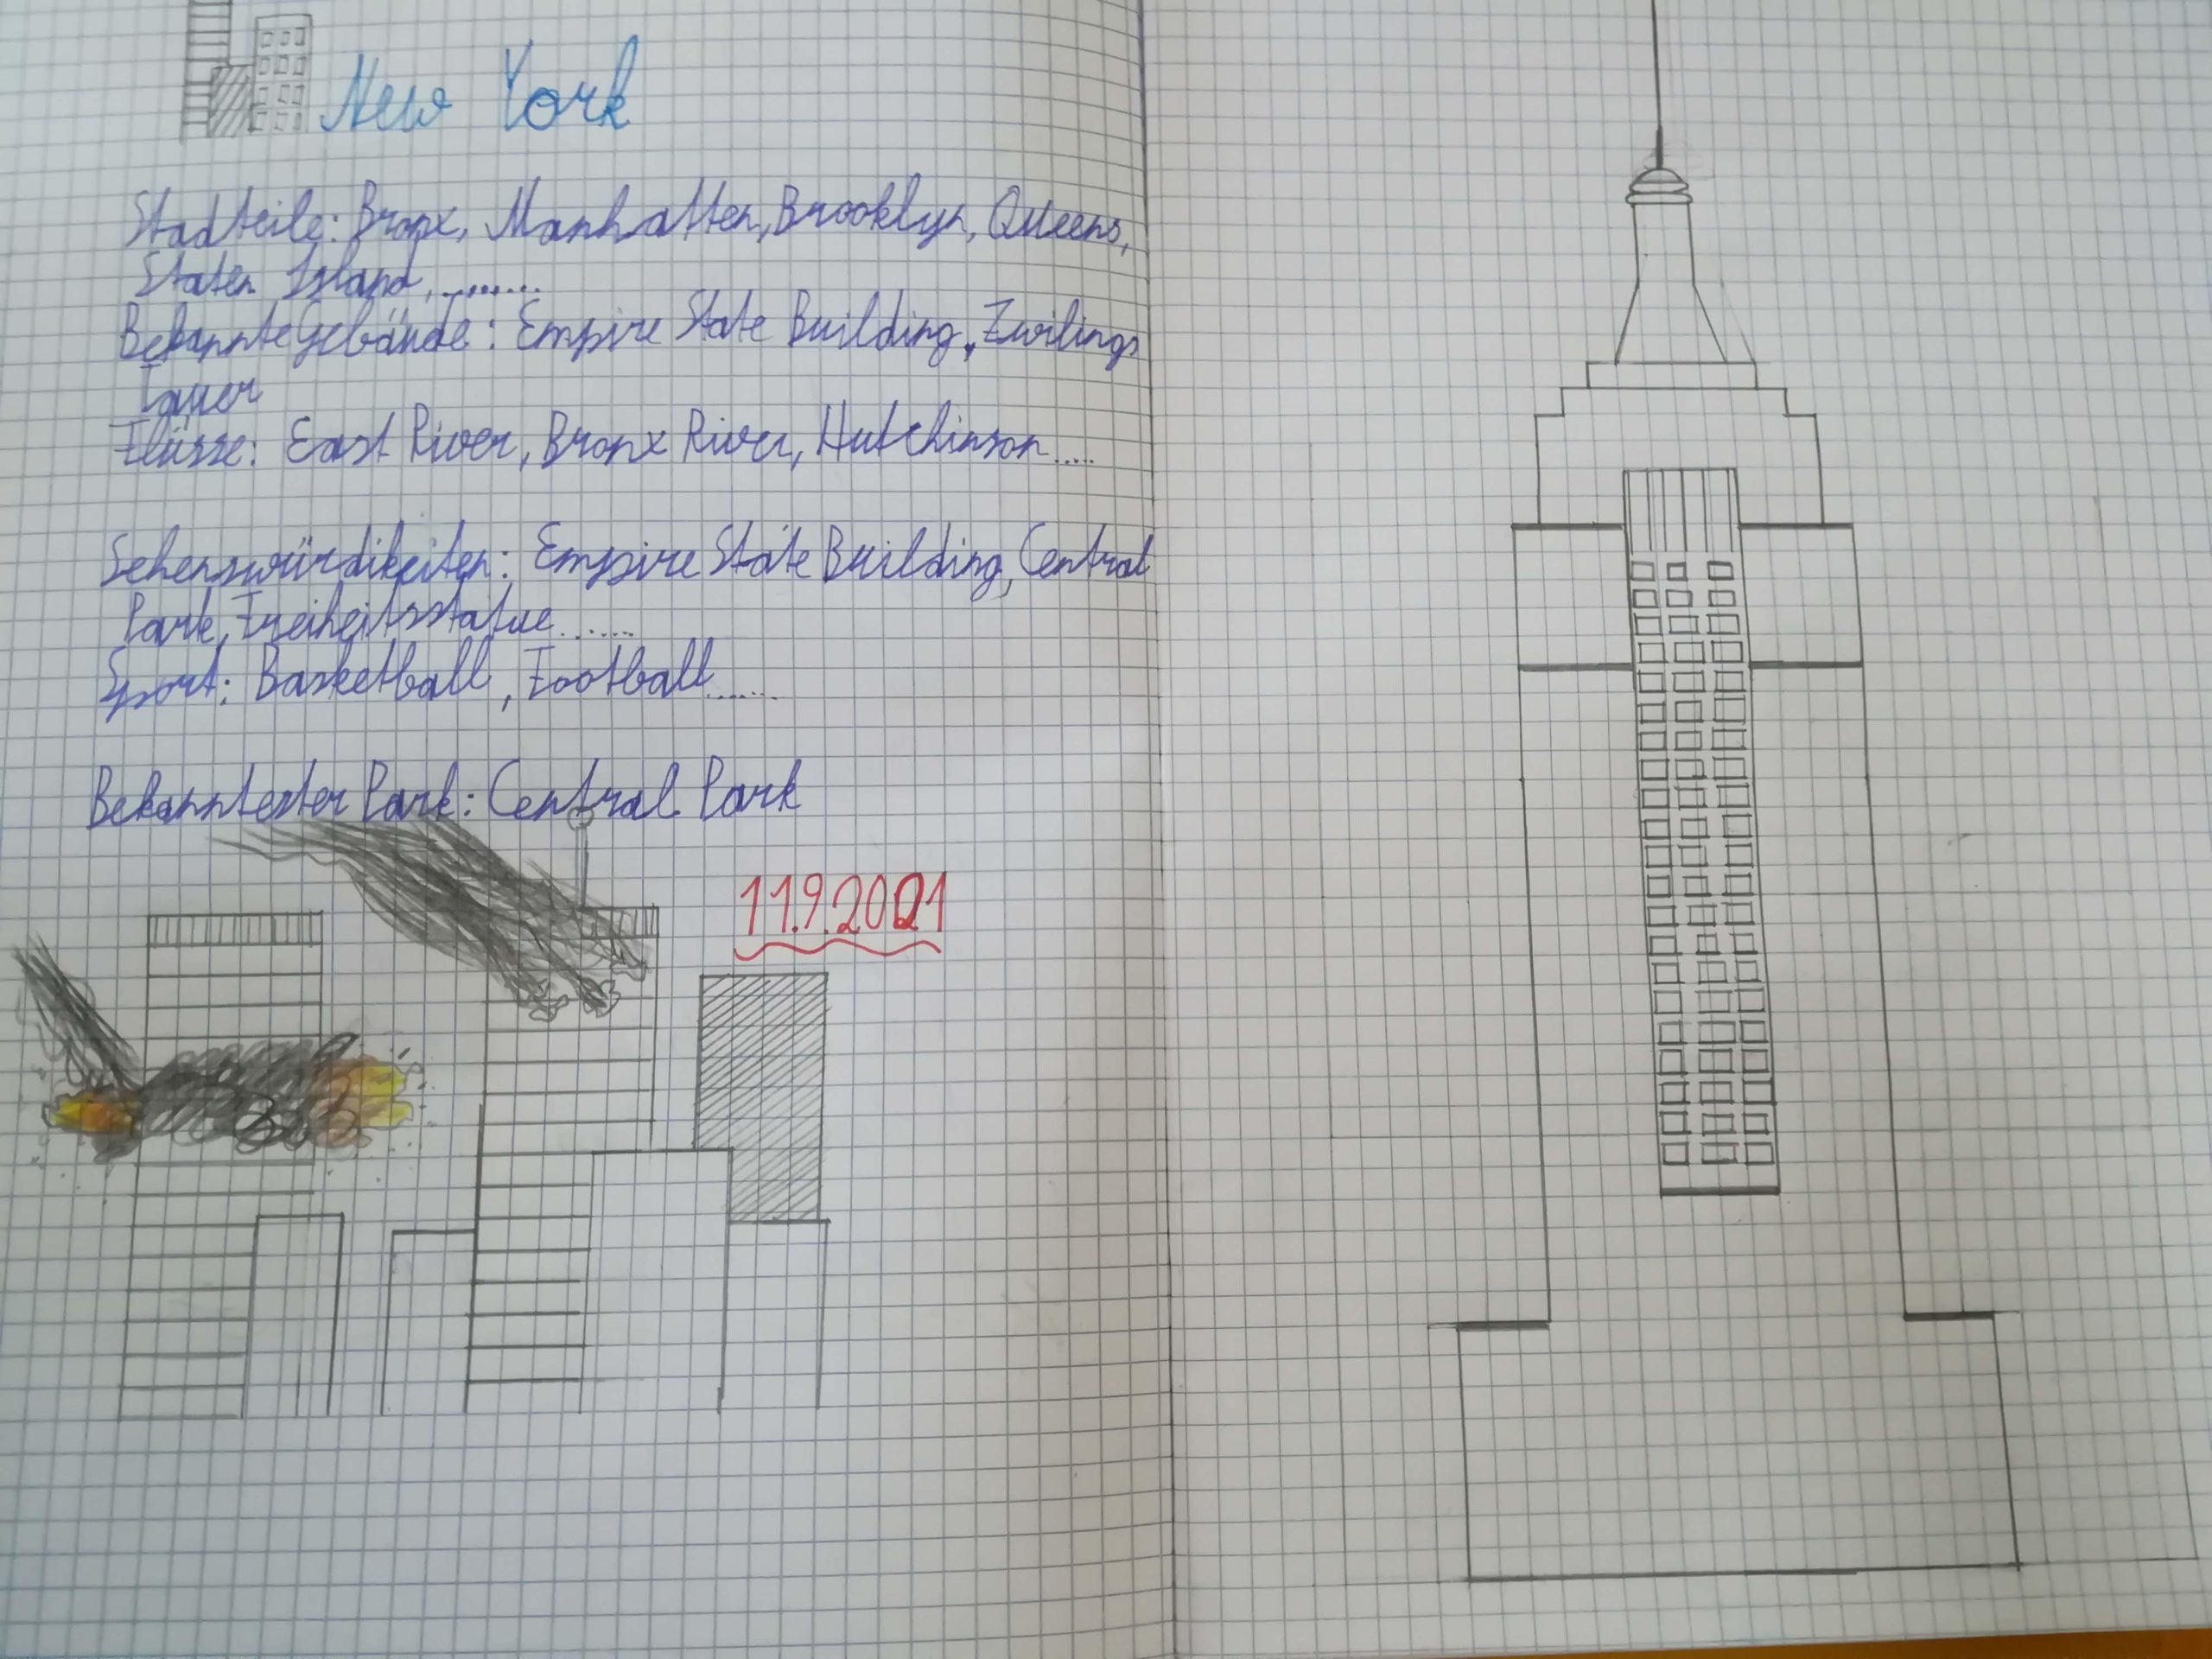 New York
Stadteile: Bronx, Manhatten, Brooklyn, Queens,
Staten Island, ........
Bekannte Gebäude: Empire State Building, Zwilings
Tauer
Flüsse: East River, Bronx River, Hutchinson.....
Sehenswürdikeiten: Empire State Building, Central
Park, Freiheitsstatue......
Sport: Basketball, Football......
Bekanntester Park: Central Park
11.9.2001